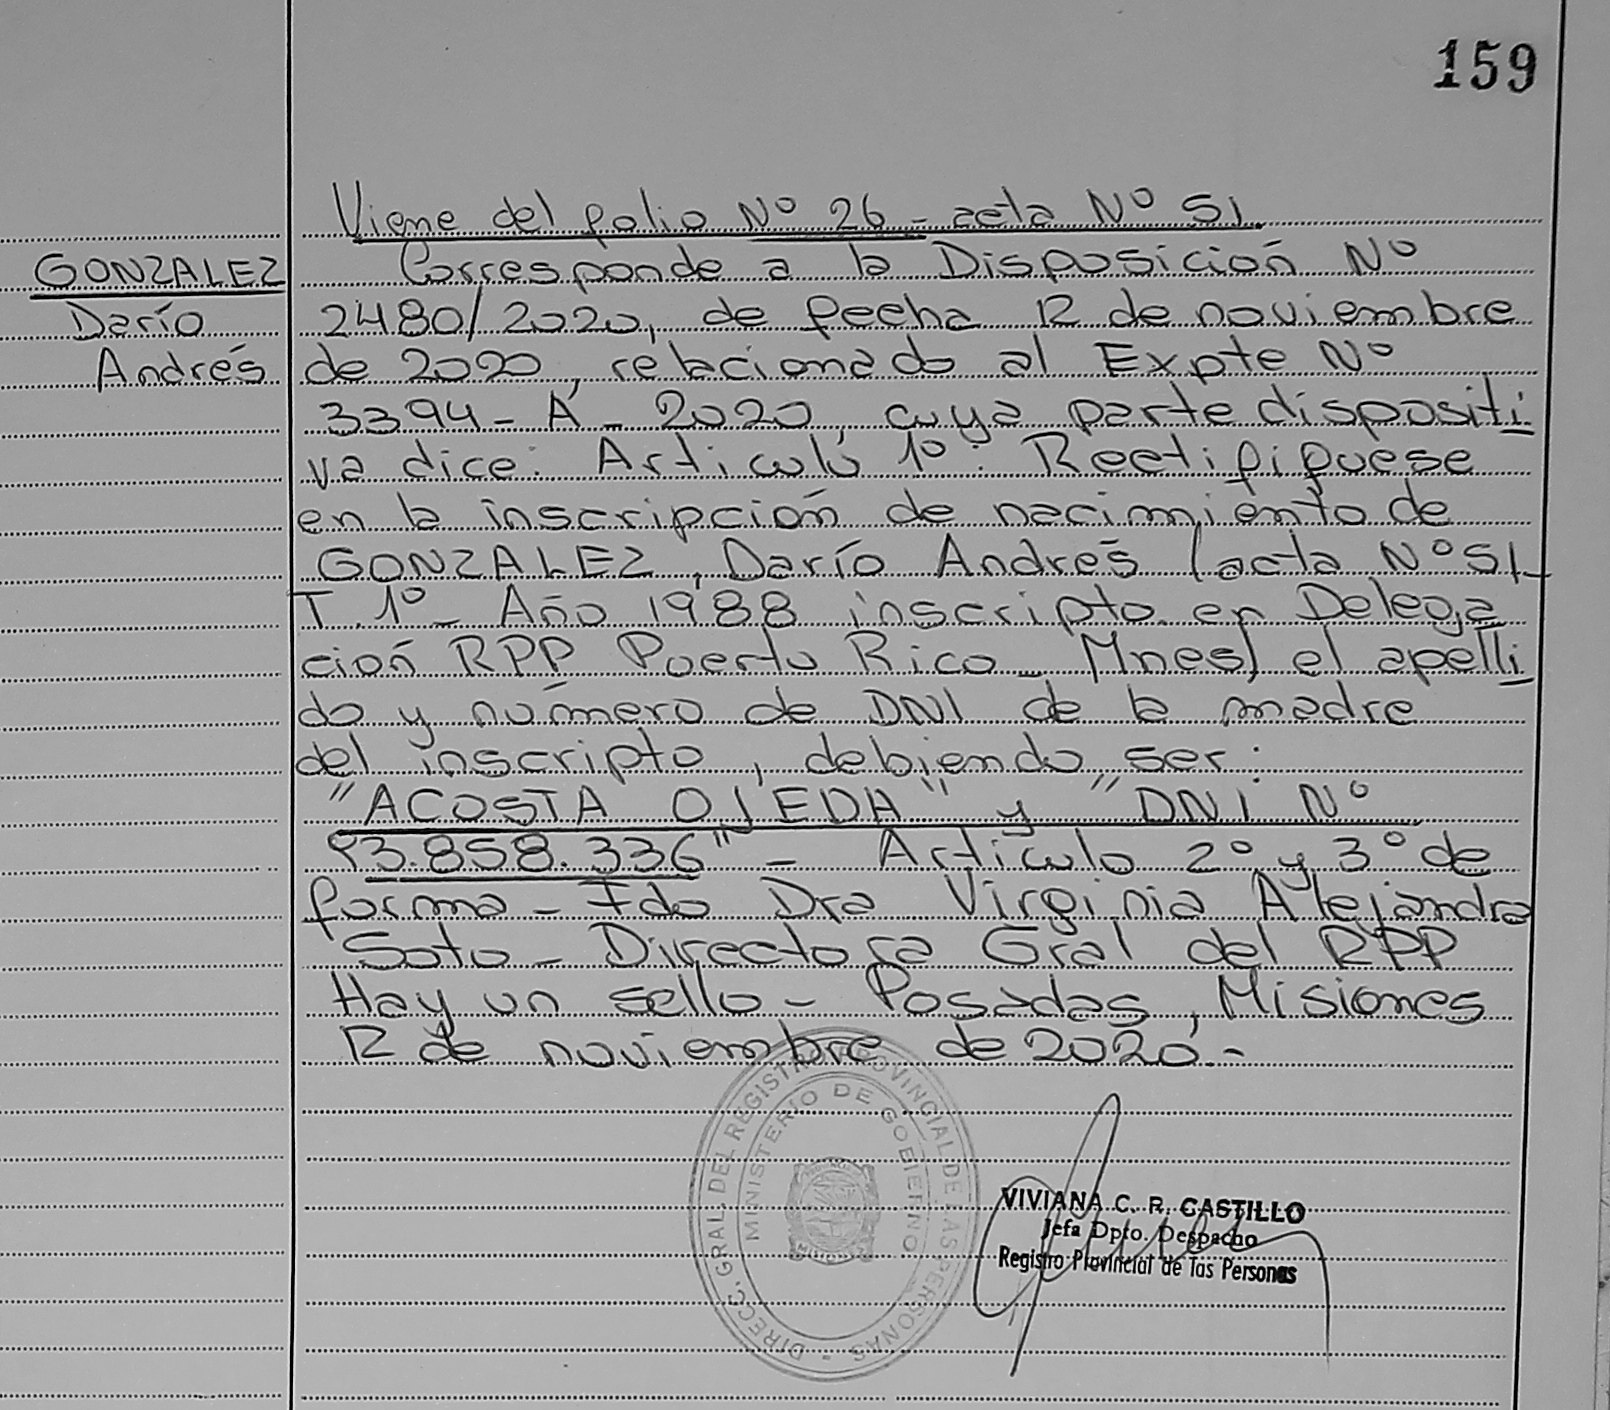 159
Viene del folio Nº 26 - acta Nº 51
GONZALEZ
Darío
Andrés
Corresponde a la Disposición Nº
2480/2020, de fecha 12 de noviembre
de 2020, relacionado al Expte Nº
3394 - A - 2020, cuya parte dispositi
va dice: Artículo 1º: Rectifíquese
en la inscripción de nacimiento de
GONZALEZ, Darío Andrés (acta Nº 51-
T. 1º - Año 1988 inscripto en Delega
ción RPP Puerto Rico - Mnes) el apelli
do y número de DNI de la madre
del inscripto, debiendo ser:
"ACOSTA OJEDA" y "DNI Nº
93.858.336" - Artículo 2º y 3º de
forma - Fdo Dra Virginia Alejandra
Soto - Directora Gral del RPP
Hay un sello - Posadas, Misiones
12 de noviembre de 2020.-
DIRECC. GRAL. DEL REGISTRO PROVINCIAL DE LAS PERSONAS -
MINISTERIO DE GOBIERNO
VIVIANA C. R. CASTILLO
Jefa Dpto. Despacho
Registro Provincial de las Personas